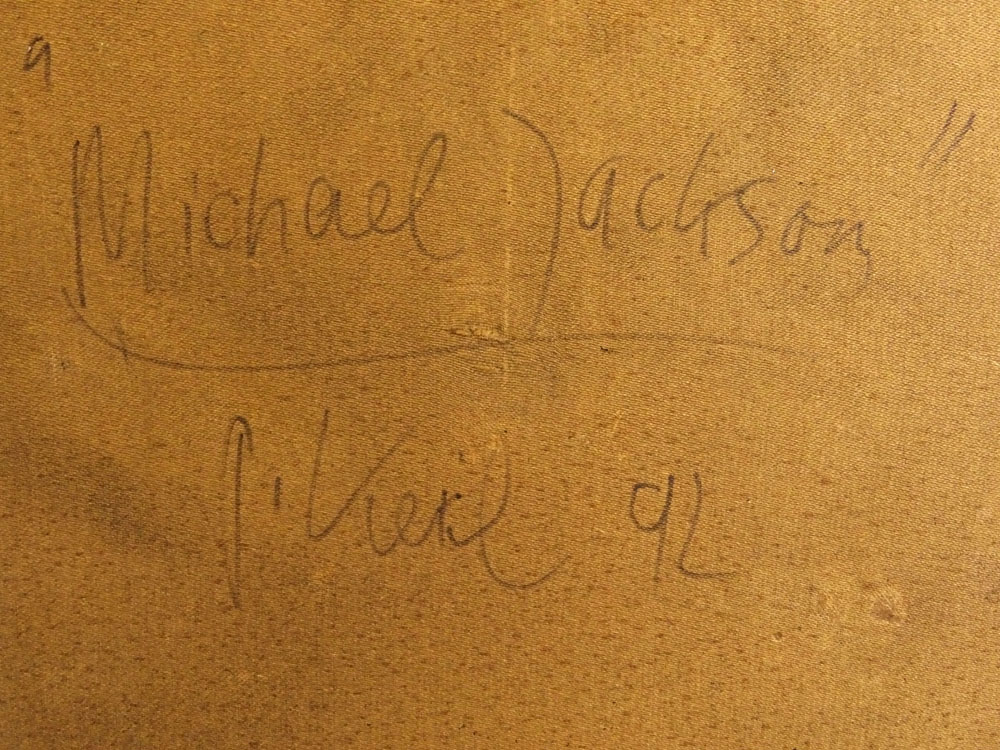 "Michael Jackson"
P. Keil 92